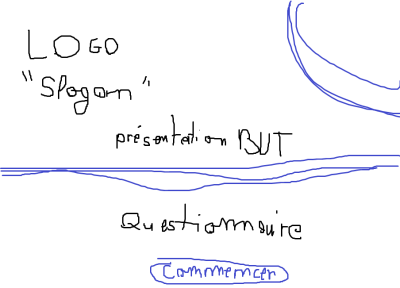 LOGO
"Slogan"
présentation BUT
Questionnaire
Commencer